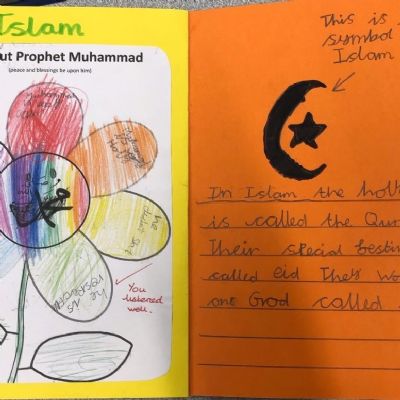 Islam
ut Prophet Muhammad
(peace and blessings be upon him)
he is
You
listened
well.
This is
symbol
Islam
In Islam the hol
is called the Qur
Their special
called eid They wo
one God called